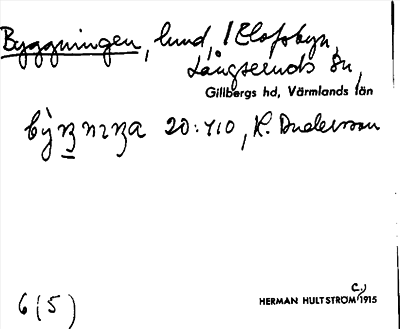 Byggningen, lund, i Elofsbyn,
Långseruds sn,
Gillbergs hd, Värmlands län
20:410, K. Andersson
6(5)
HERMAN HULTSTRÖM C.) 1915